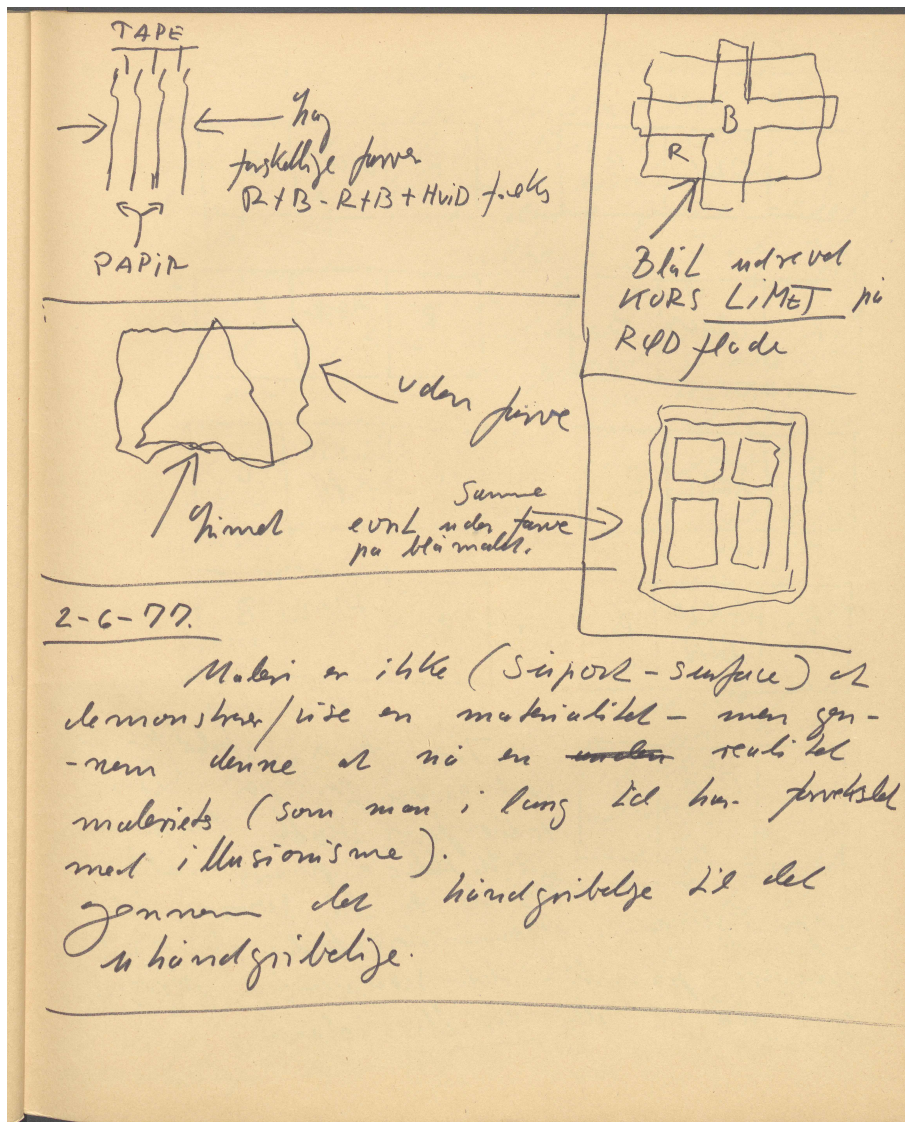 TAPE
forskellige farver
R+B - R+B + HviD f.eks
PAPiR
B
R
Blåt udrevet
KORS LiMET på
RØD flade
uden farve
Samme
evnt uden farve
på blåmalet.
2-6-77.
Maleri er ikke (Suport-surface) at
demonstrer/vise en materialitet - men gen-
-nem denne at nå en realitet
maleriets (som man i lang tid har forvekslet
med illusionisme).
gennem det håndgribelige til det
uhåndgribelige.